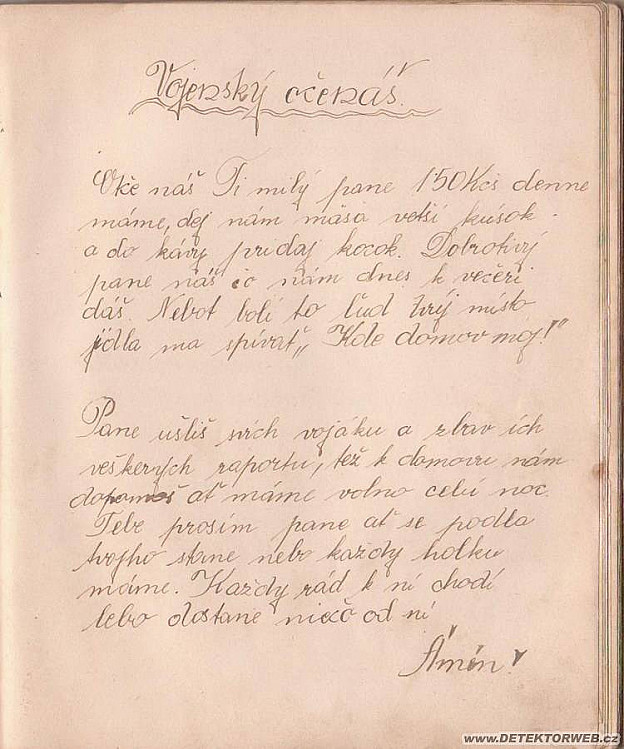 Vojenský očenáš.
Otče náš Ti milý pane 1'50 Kčs denne
máme, dej nám mäsa vetší kúsok
a do kávy pridaj kocok. Dobrotivý
pane náš čo nám dnes k večeři
dáš. Nebot bolí to lud tvůj místo
jídla ma spívať „Kde domov moj!"
Pane ušliš svích vojáku a zbav ích
veškerých raportu, tež k domovu nám
dopomoš ať máme volno celú noc.
Tebe prosím pane ať se podla
tvojho stane nebo každy holku
máme. Každy rád k ní chodí
lebo dostane niečo od ní
Ámén!
www.DETEKTORWEB.cz